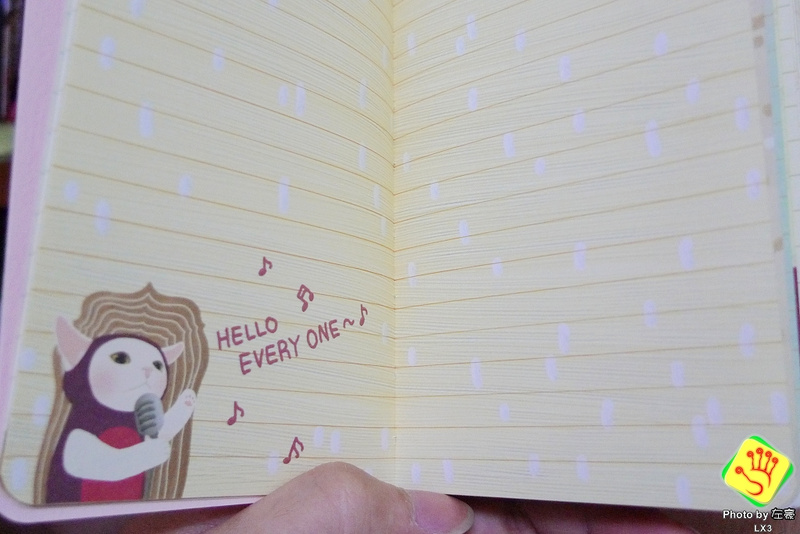 HELLO
EVERY ONE~
Photo by 左撇
LX3